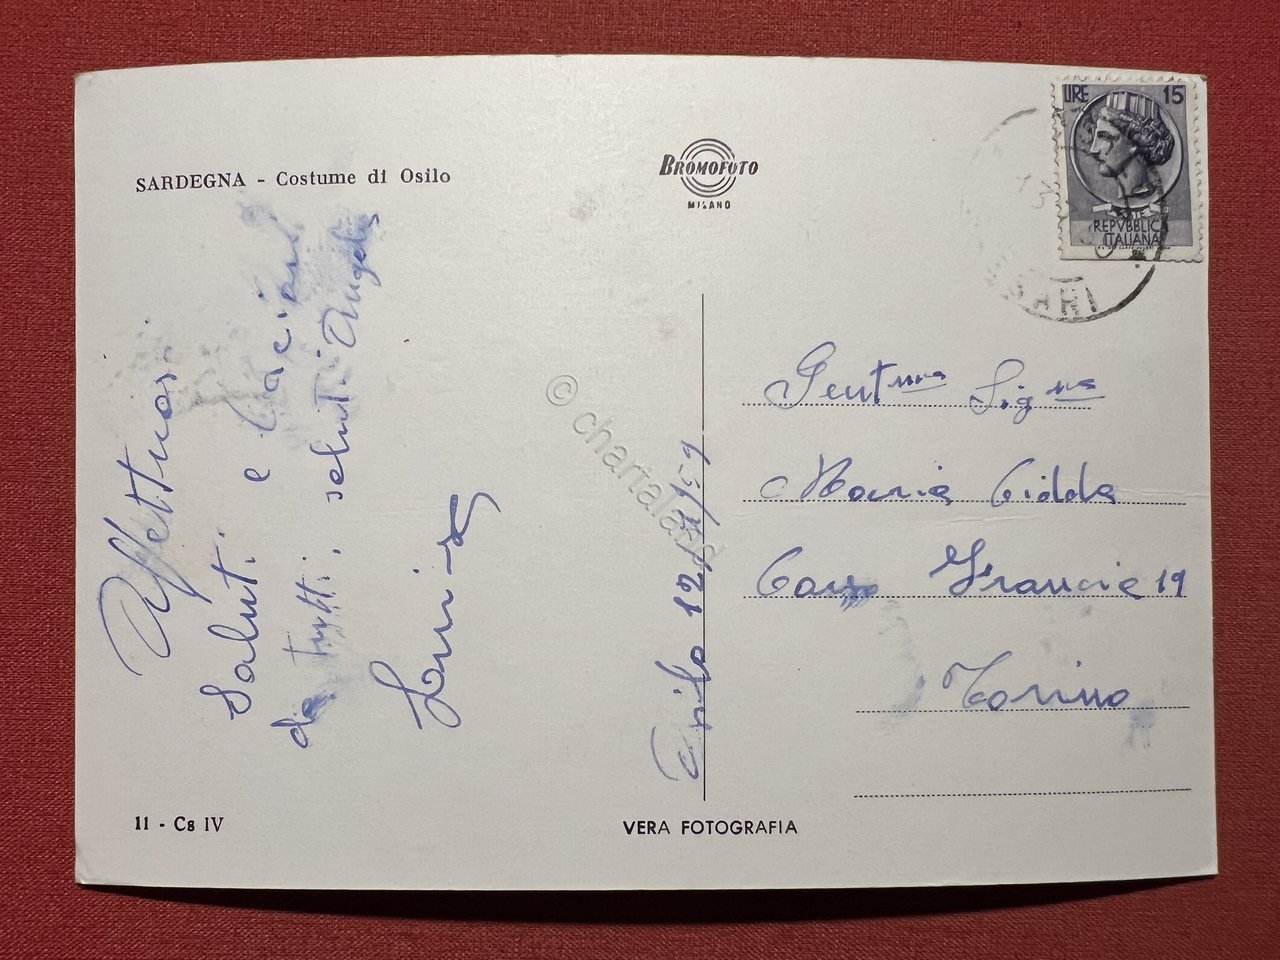 SARDEGNA - Costume di Osilo
BROMOFOTO
MILANO
LIRE 15
REPVBBLICA
ITALIANA
Affettuosi
saluti e baci
da tutti, saluti Angela
Luisa
Osilo 12/
© chartaland
Gent.ma Sig.na
Maria
Corso Francia 19
Torino
11 - Cs IV
VERA FOTOGRAFIA